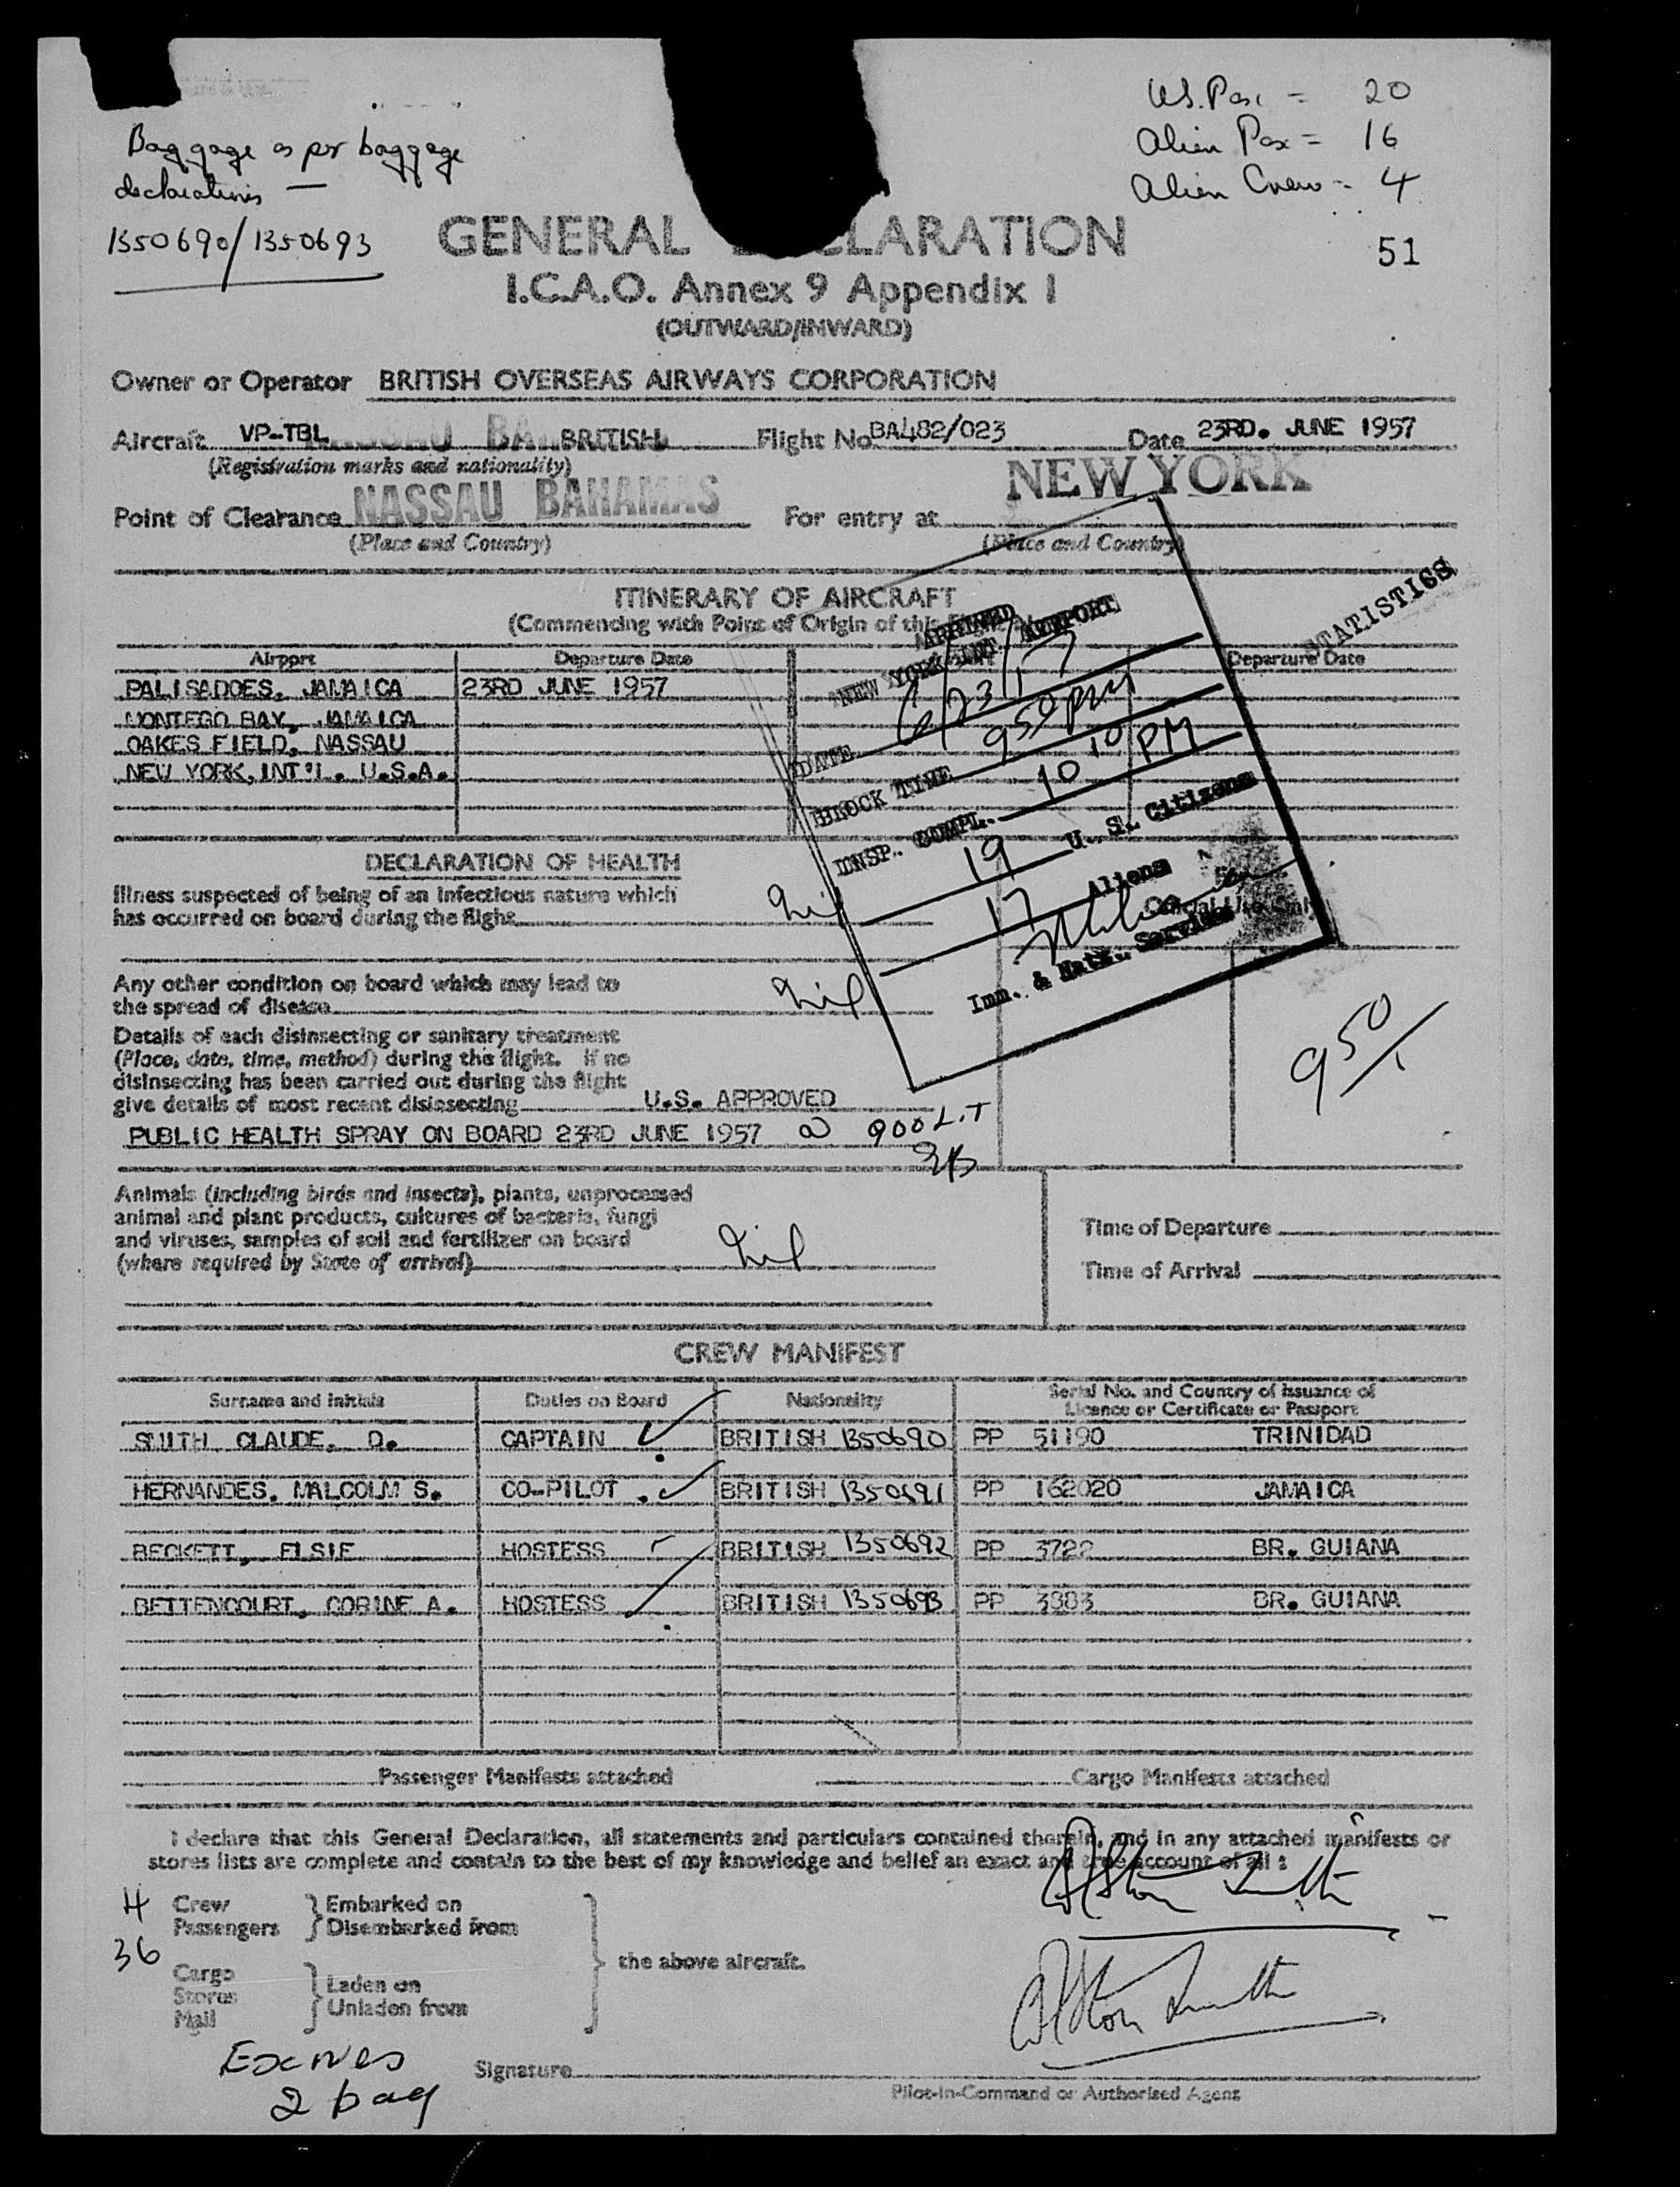 U.S. Pax = 20
Alien Pax = 16
Alien Crew - 4
Baggage as per baggage
declarations —
1350690/1350693
51
GENERAL CLARATION
I.C.A.O. Annex 9 Appendix I
(OUTWARD/INWARD)
Owner or Operator BRITISH OVERSEAS AIRWAYS CORPORATION
Aircraft VP-TBL BRITISH Flight No. BA482/023 Date 23RD. JUNE 1957
(Registration marks and nationality)
Point of Clearance NASSAU BAHAMAS For entry at NEW YORK
(Place and Country) (Place and Country)
ITINERARY OF AIRCRAFT
(Commencing with Point of Origin of this
Airport Departure Date Departure Date
PALISADOES, JAMAICA 23RD JUNE 1957
MONTEGO BAY, JAMAICA
OAKES FIELD, NASSAU
NEW YORK, INT'L. U.S.A.
STATISTICS
ARRIVED
NEW YORK INT. AIRPORT
DATE 6/23/57
BLOCK TIME 9 50 PM
INSP. COMPL. 10 10 PM
19 U. S. Citizens
17 Aliens
Imm. & Natz. Service
Official Use Only
DECLARATION OF HEALTH
Illness suspected of being of an infectious nature which
has occurred on board during the flight nil
Any other condition on board which may lead to
the spread of disease nil
Details of each disinsecting or sanitary treatment
(Place, date, time, method) during the flight. If no
disinsecting has been carried out during the flight
give details of most recent disinsecting U.S. APPROVED
PUBLIC HEALTH SPRAY ON BOARD 23RD JUNE 1957 @ 900 L.T
9 50/
Animals (including birds and insects), plants, unprocessed
animal and plant products, cultures of bacteria, fungi
and viruses, samples of soil and fertilizer on board
(where required by State of arrival) nil
Time of Departure
Time of Arrival
CREW MANIFEST
Surname and Initials Duties on Board Nationality Serial No. and Country of Issuance of
Licence or Certificate or Passport
SMITH CLAUDE. D. CAPTAIN BRITISH 1350690 PP 51190 TRINIDAD
HERNANDES, MALCOLM S. CO-PILOT BRITISH 1350691 PP 162020 JAMAICA
BECKETT, ELSIE HOSTESS BRITISH 1350692 PP 3722 BR. GUIANA
BETTENCOURT, CORINE A. HOSTESS BRITISH 1350693 PP 3883 BR. GUIANA
Passenger Manifests attached Cargo Manifests attached
I declare that this General Declaration, all statements and particulars contained therein, and in any attached manifests or
stores lists are complete and contain to the best of my knowledge and belief an exact and true account of all :
4 Crew Embarked on
36 Passengers Disembarked from
the above aircraft.
Cargo
Stores Laden on
Mail Unladen from
2 bag
Signature
Pilot-in-Command or Authorised Agent